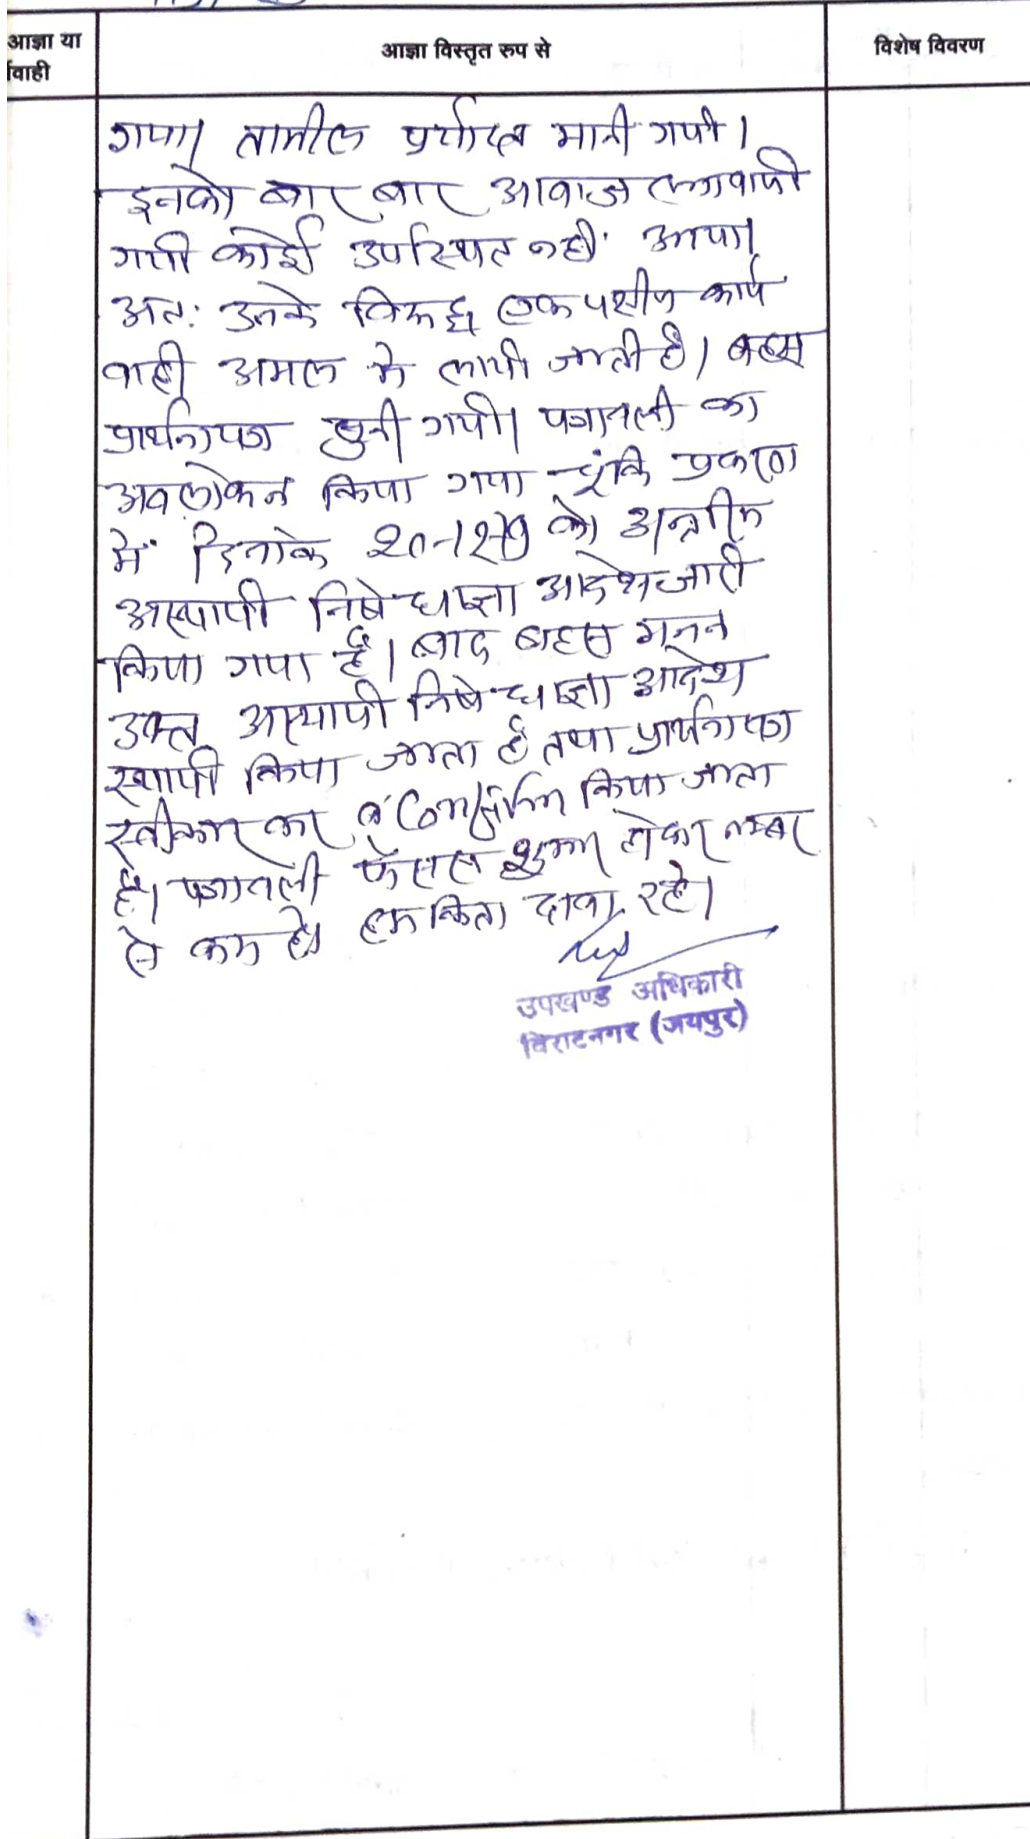 आज्ञा या
र्वाही
आज्ञा विस्तृत रुप से
विशेष विवरण
गया। तामील पर्याप्त मानी गयी।
इनको बार बार आवाज लगवायी
गयी कोई उपस्थित नही आया।
अतः उनके विरूद्ध एक पक्षीय कार्य
वाही अमल मे लायी जाती है। बहस
प्रार्थनापत्र सुनी गयी। पत्रावली का
अवलोकन किया गया चूंकि प्रकरण
में दिनांक को अन्तरिम
अस्थायी निषेधाज्ञा आदेश जारी
किया गया है। बाद बहस मनन
उक्त अस्थायी निषेधाज्ञा आदेश
स्थायी किया जाता है तथा प्रार्थनापत्र
स्वीकार कर किया जाता
है। पत्रावली फैसल शुमार होकर नम्बर
से कम हो दावा रहे।
उपखण्ड अधिकारी
विराटनगर (जयपुर)